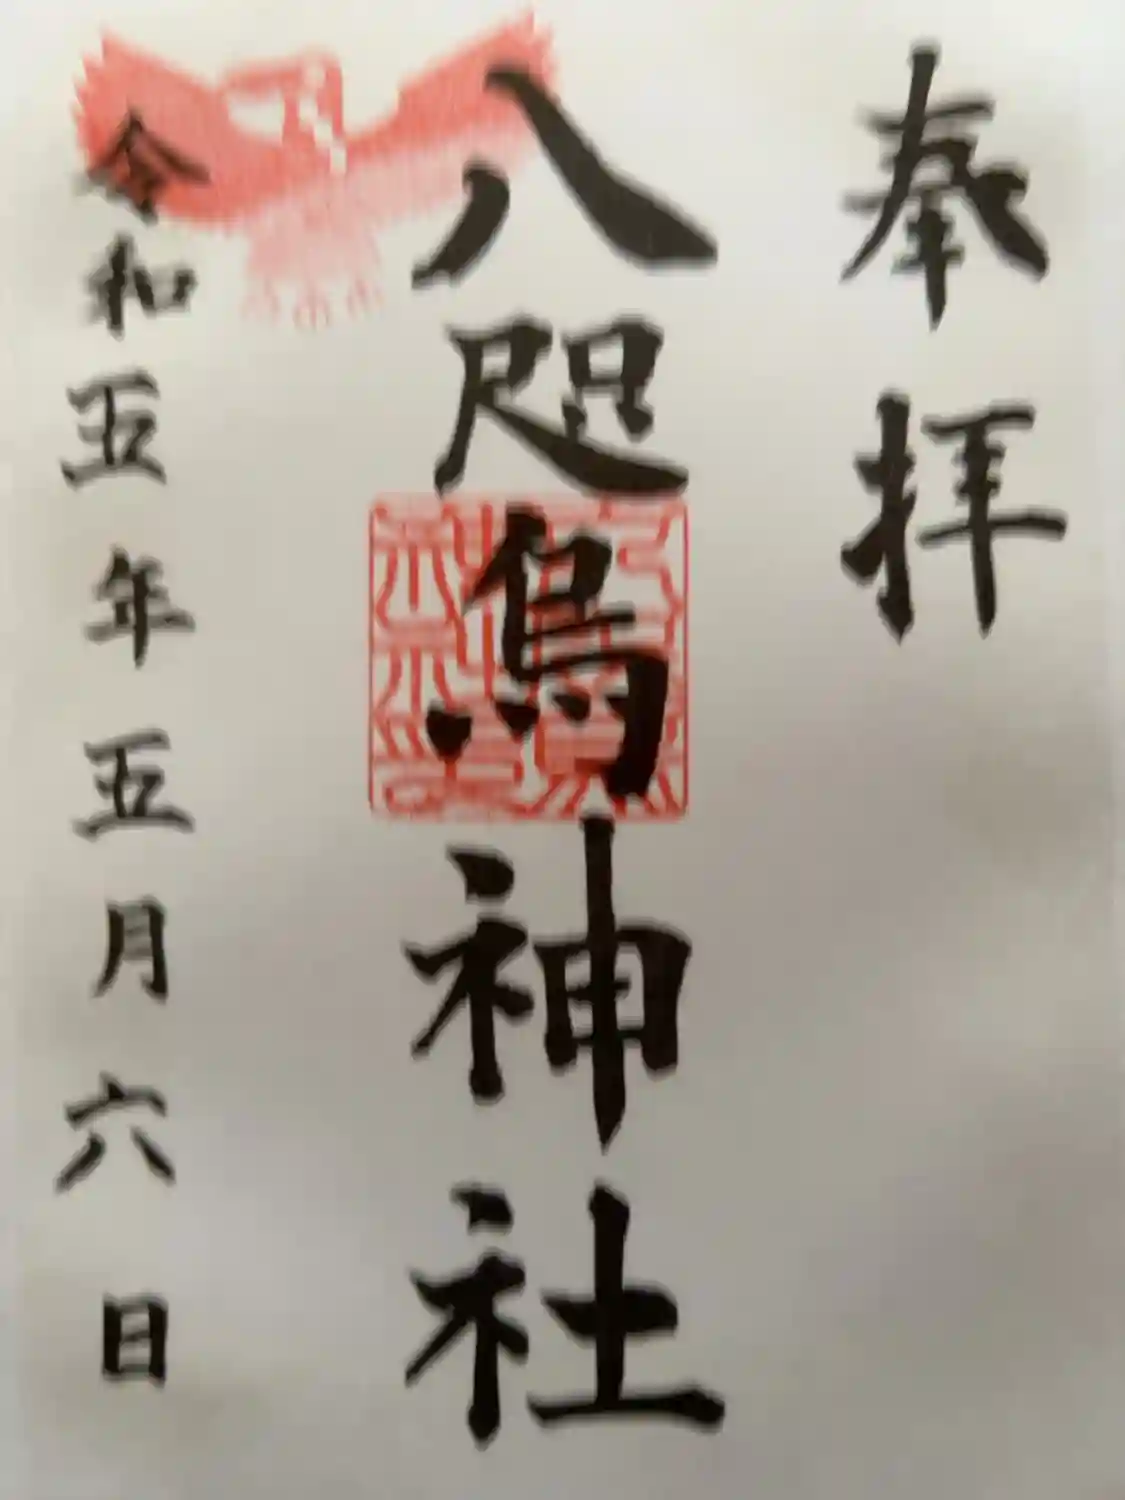 奉拝
八咫烏神社
令和五年五月六日